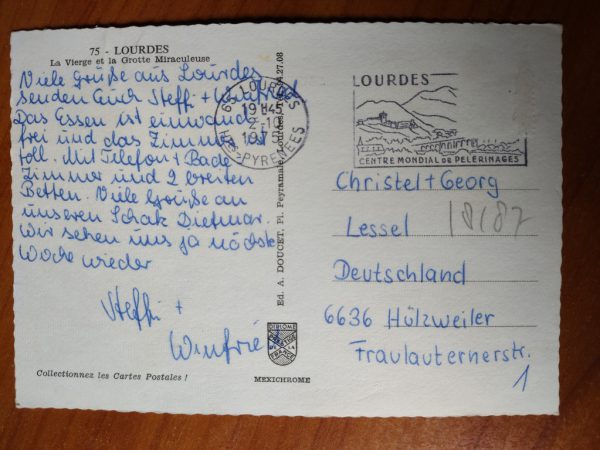 75 - LOURDES
La Vierge et la Grotte Miraculeuse
Viele Grüße aus Lourdes
senden Euch Steffi + Winfried
Das Essen ist einwand-
frei und das Zimmer ist
toll. Mit Telefon + Bade
Zimmer und 2 breiten
Betten. Viele Grüße an
unseren Schatz Dietmar.
Wir sehen uns ja nächste
Woche wieder
Steffi +
Winfried
Collectionnez les Cartes Postales !
Ed. A. DOUCET, Pl. Peyramale, Lourdes
LOURDES
19H45
2-10
PYRENEES
MEXICHROME
LOURDES
CENTRE MONDIAL DE PELERINAGES
Christel + Georg
Lessel
18/87
Deutschland
6636 Hülzweiler
Fraulauternerstr.
1